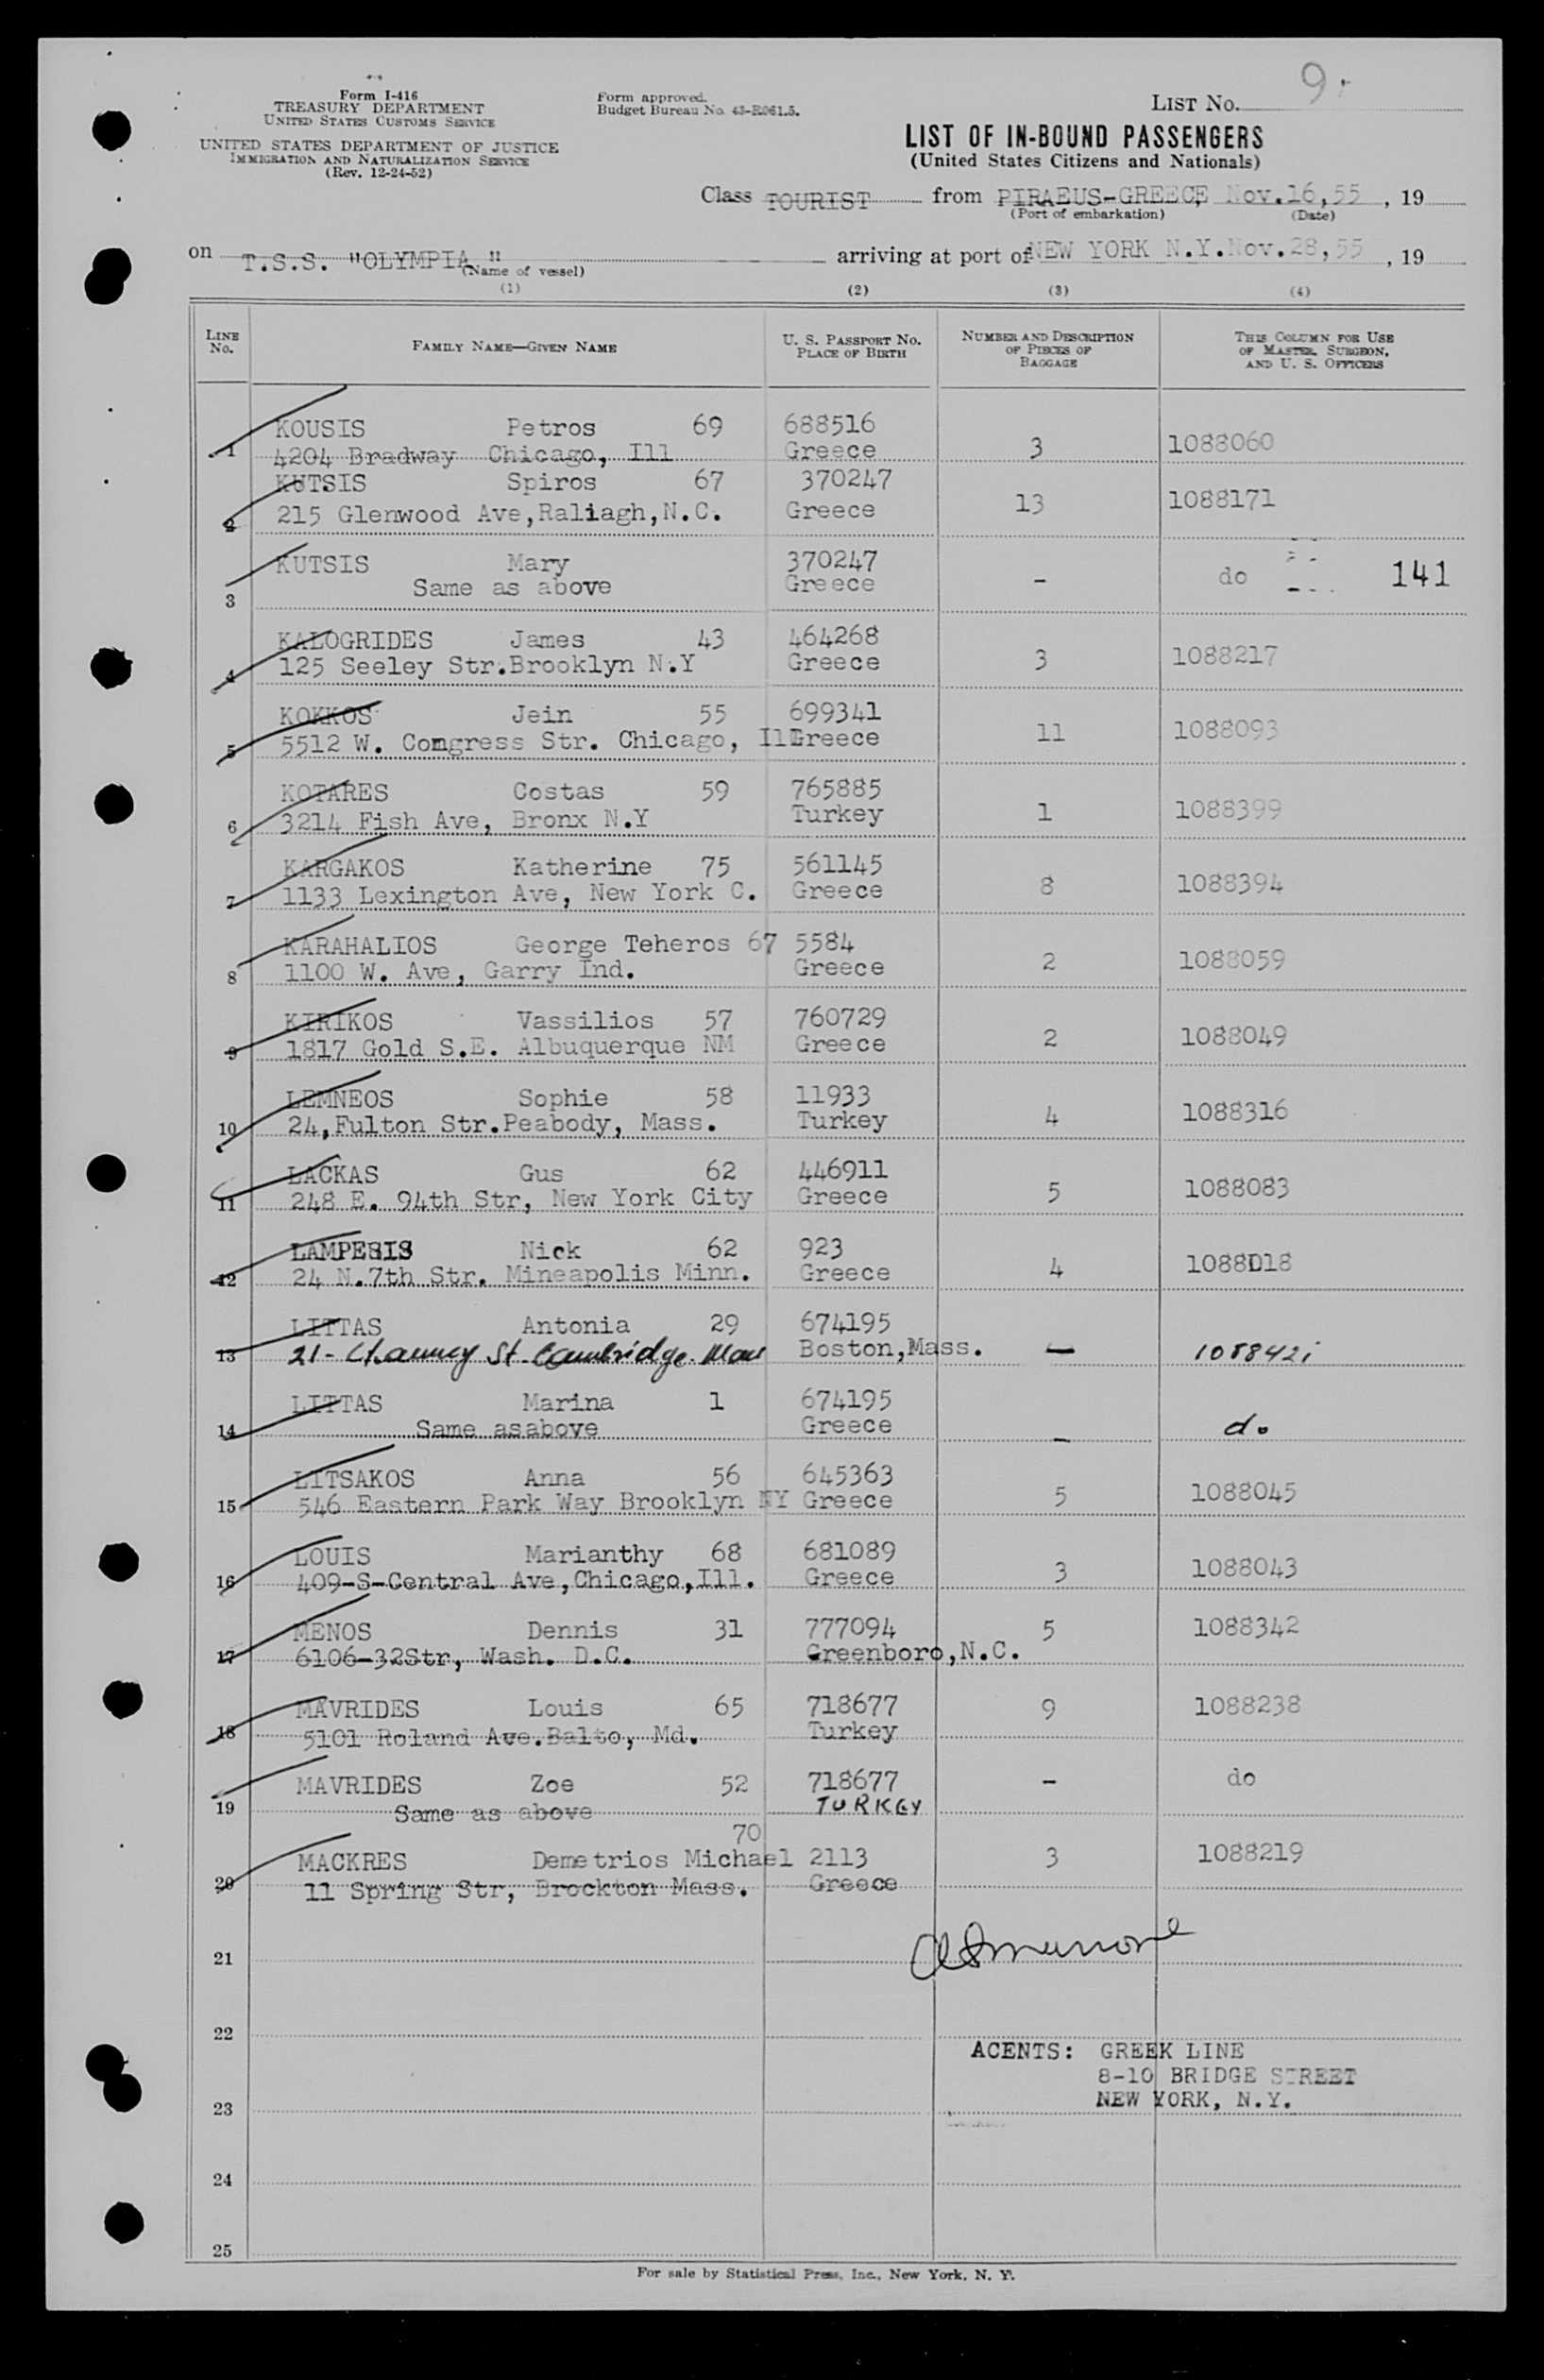 9.
Form I-416
TREASURY DEPARTMENT
UNITED STATES CUSTOMS SERVICE
UNITED STATES DEPARTMENT OF JUSTICE
IMMIGRATION AND NATURALIZATION SERVICE
(Rev. 12-24-52)
Form approved.
Budget Bureau No. 43-R061.5.
LIST No.
LIST OF IN-BOUND PASSENGERS
(United States Citizens and Nationals)
Class TOURIST from PIRAEUS-GREECE Nov.16,55, 19
(Port of embarkation) (Date)
on T.S.S. "OLYMPIA" arriving at port of NEW YORK N.Y. Nov.28,55, 19
(Name of vessel)
(1) (2) (3) (4)
LINE No. FAMILY NAME—GIVEN NAME U. S. PASSPORT NO. PLACE OF BIRTH NUMBER AND DESCRIPTION OF PIECES OF BAGGAGE THIS COLUMN FOR USE OF MASTER, SURGEON, AND U. S. OFFICERS
KOUSIS Petros 69 688516
1 4204 Bradway Chicago, Ill Greece 3 1088060
KUTSIS Spiros 67 370247
2 215 Glenwood Ave,Raliagh,N.C. Greece 13 1088171
KUTSIS Mary 370247
3 Same as above Greece - do 141
KALOGRIDES James 43 464268
4 125 Seeley Str.Brooklyn N.Y Greece 3 1088217
KOKKOS Jein 55 699341
5 5512 W. Comgress Str. Chicago, Ill Greece 11 1088093
KOTARES Costas 59 765885
6 3214 Fish Ave, Bronx N.Y Turkey 1 1088399
KARGAKOS Katherine 75 561145
7 1133 Lexington Ave, New York C. Greece 8 1088394
KARAHALIOS George Teheros 67 5584
8 1100 W. Ave, Garry Ind. Greece 2 1088059
KIRIKOS Vassilios 57 760729
9 1817 Gold S.E. Albuquerque NM Greece 2 1088049
LEMNEOS Sophie 58 11933
10 24,Fulton Str.Peabody, Mass. Turkey 4 1088316
LACKAS Gus 62 446911
11 248 E. 94th Str, New York City Greece 5 1088083
LAMPESIS Nick 62 923
12 24 N.7th Str. Mineapolis Minn. Greece 4 1088D18
LITTAS Antonia 29 674195
13 21- Chauncy St. Cambridge. Mass Boston,Mass. - 1088421
LITTAS Marina 1 674195
14 Same asabove Greece - do
LITSAKOS Anna 56 645363
15 546 Eastern Park Way Brooklyn NY Greece 5 1088045
LOUIS Marianthy 68 681089
16 409-S-Central Ave,Chicago,Ill. Greece 3 1088043
MENOS Dennis 31 777094 5 1088342
17 6106-32Str, Wash. D.C. Greenboro,N.C.
MAVRIDES Louis 65 718677 9 1088238
18 5101 Roland Ave.Balto, Md. Turkey
MAVRIDES Zoe 52 718677 - do
19 Same as above TURKEY
70
MACKRES Demetrios Michael 2113 3 1088219
20 11 Spring Str, Brockton Mass. Greece
21
22
ACENTS: GREEK LINE
8-10 BRIDGE STREET
NEW YORK, N.Y.
23
24
25
For sale by Statistical Press, Inc., New York, N. Y.